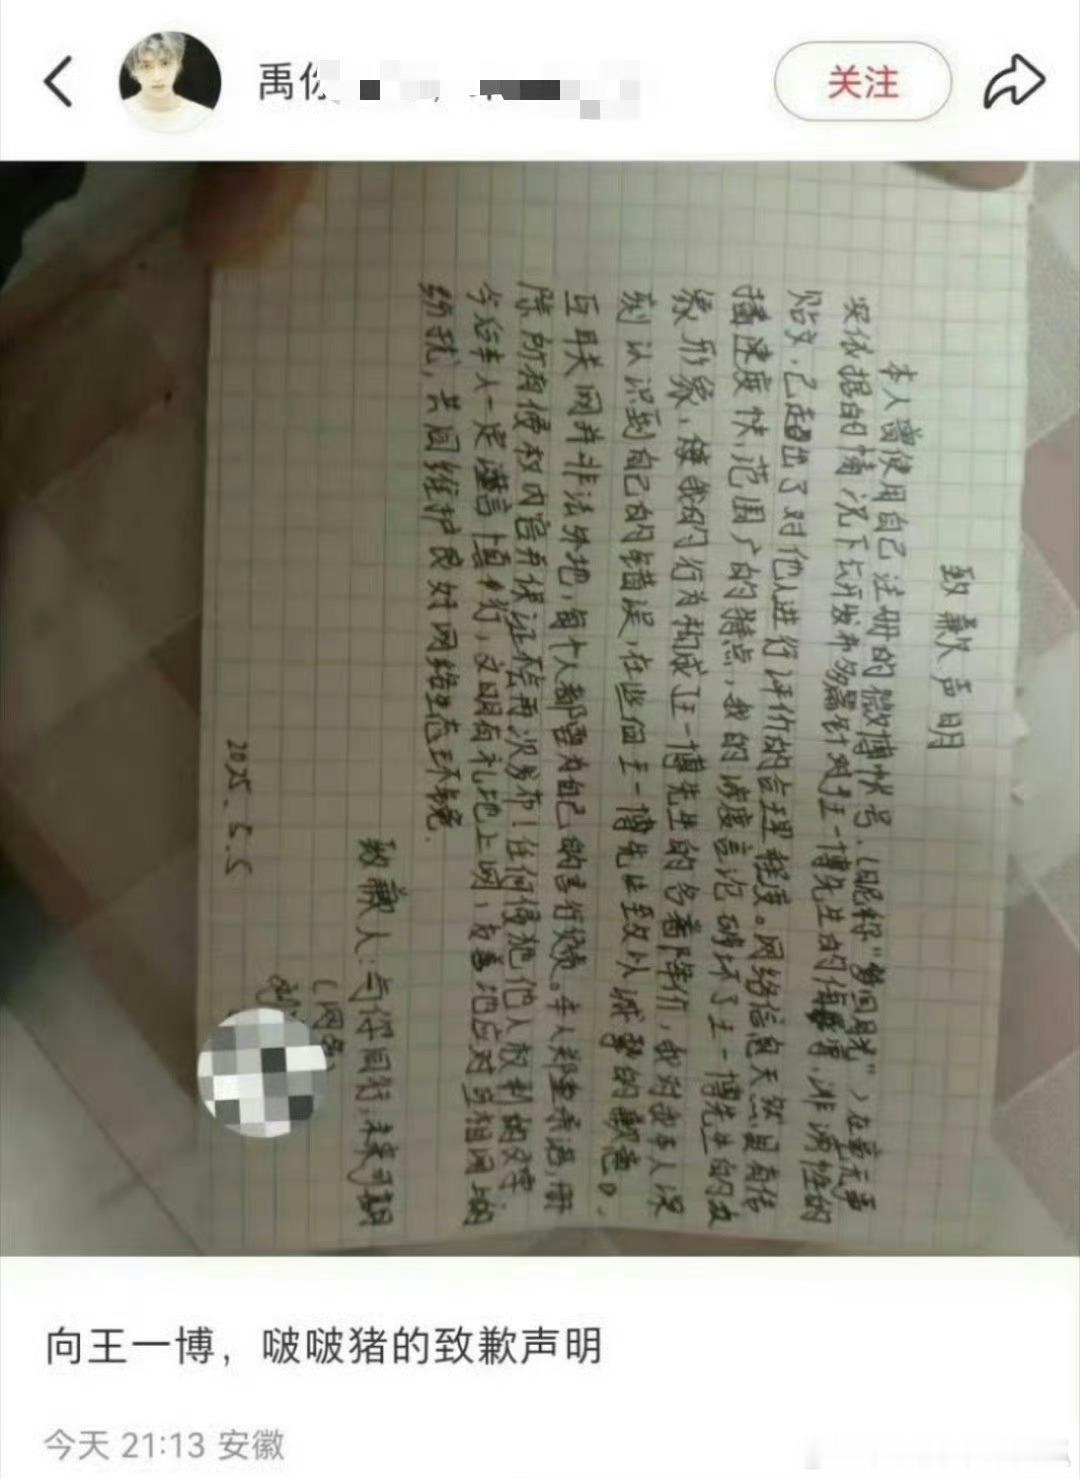 禹
关注
致歉声明
本人曾使用自己注册的微博帐号（昵称"梦回
实依据的情况下公开发布多篇针对王一博先生的侮辱、诽谤性的
贴文，已超出了对他人进行评价的合理程度。网络信息天然具有传
播速度快，范围广的特点，我的
言论破坏了王一博先生的
象形象，使
我的行为构成王一博先生的
降价，我对
本人深
刻认识到自己的错误，在此向王一博先生致以诚挚的歉意。
互联网并非法外地，每个人都要为自己的言行
。本人郑重承诺，删
除所有侵权内容并保证不会再次发布！任何侵犯他人权利的文字
今后本人一定谨言慎行，文明有礼地上网，友善地应对互相网上的
纷扰，共同维护良好网络生态环境
致歉人：与你同行，未来可期
(网名)
2025.5.5
向王一博，啵啵猪的致歉声明
今天 21:13 安徽